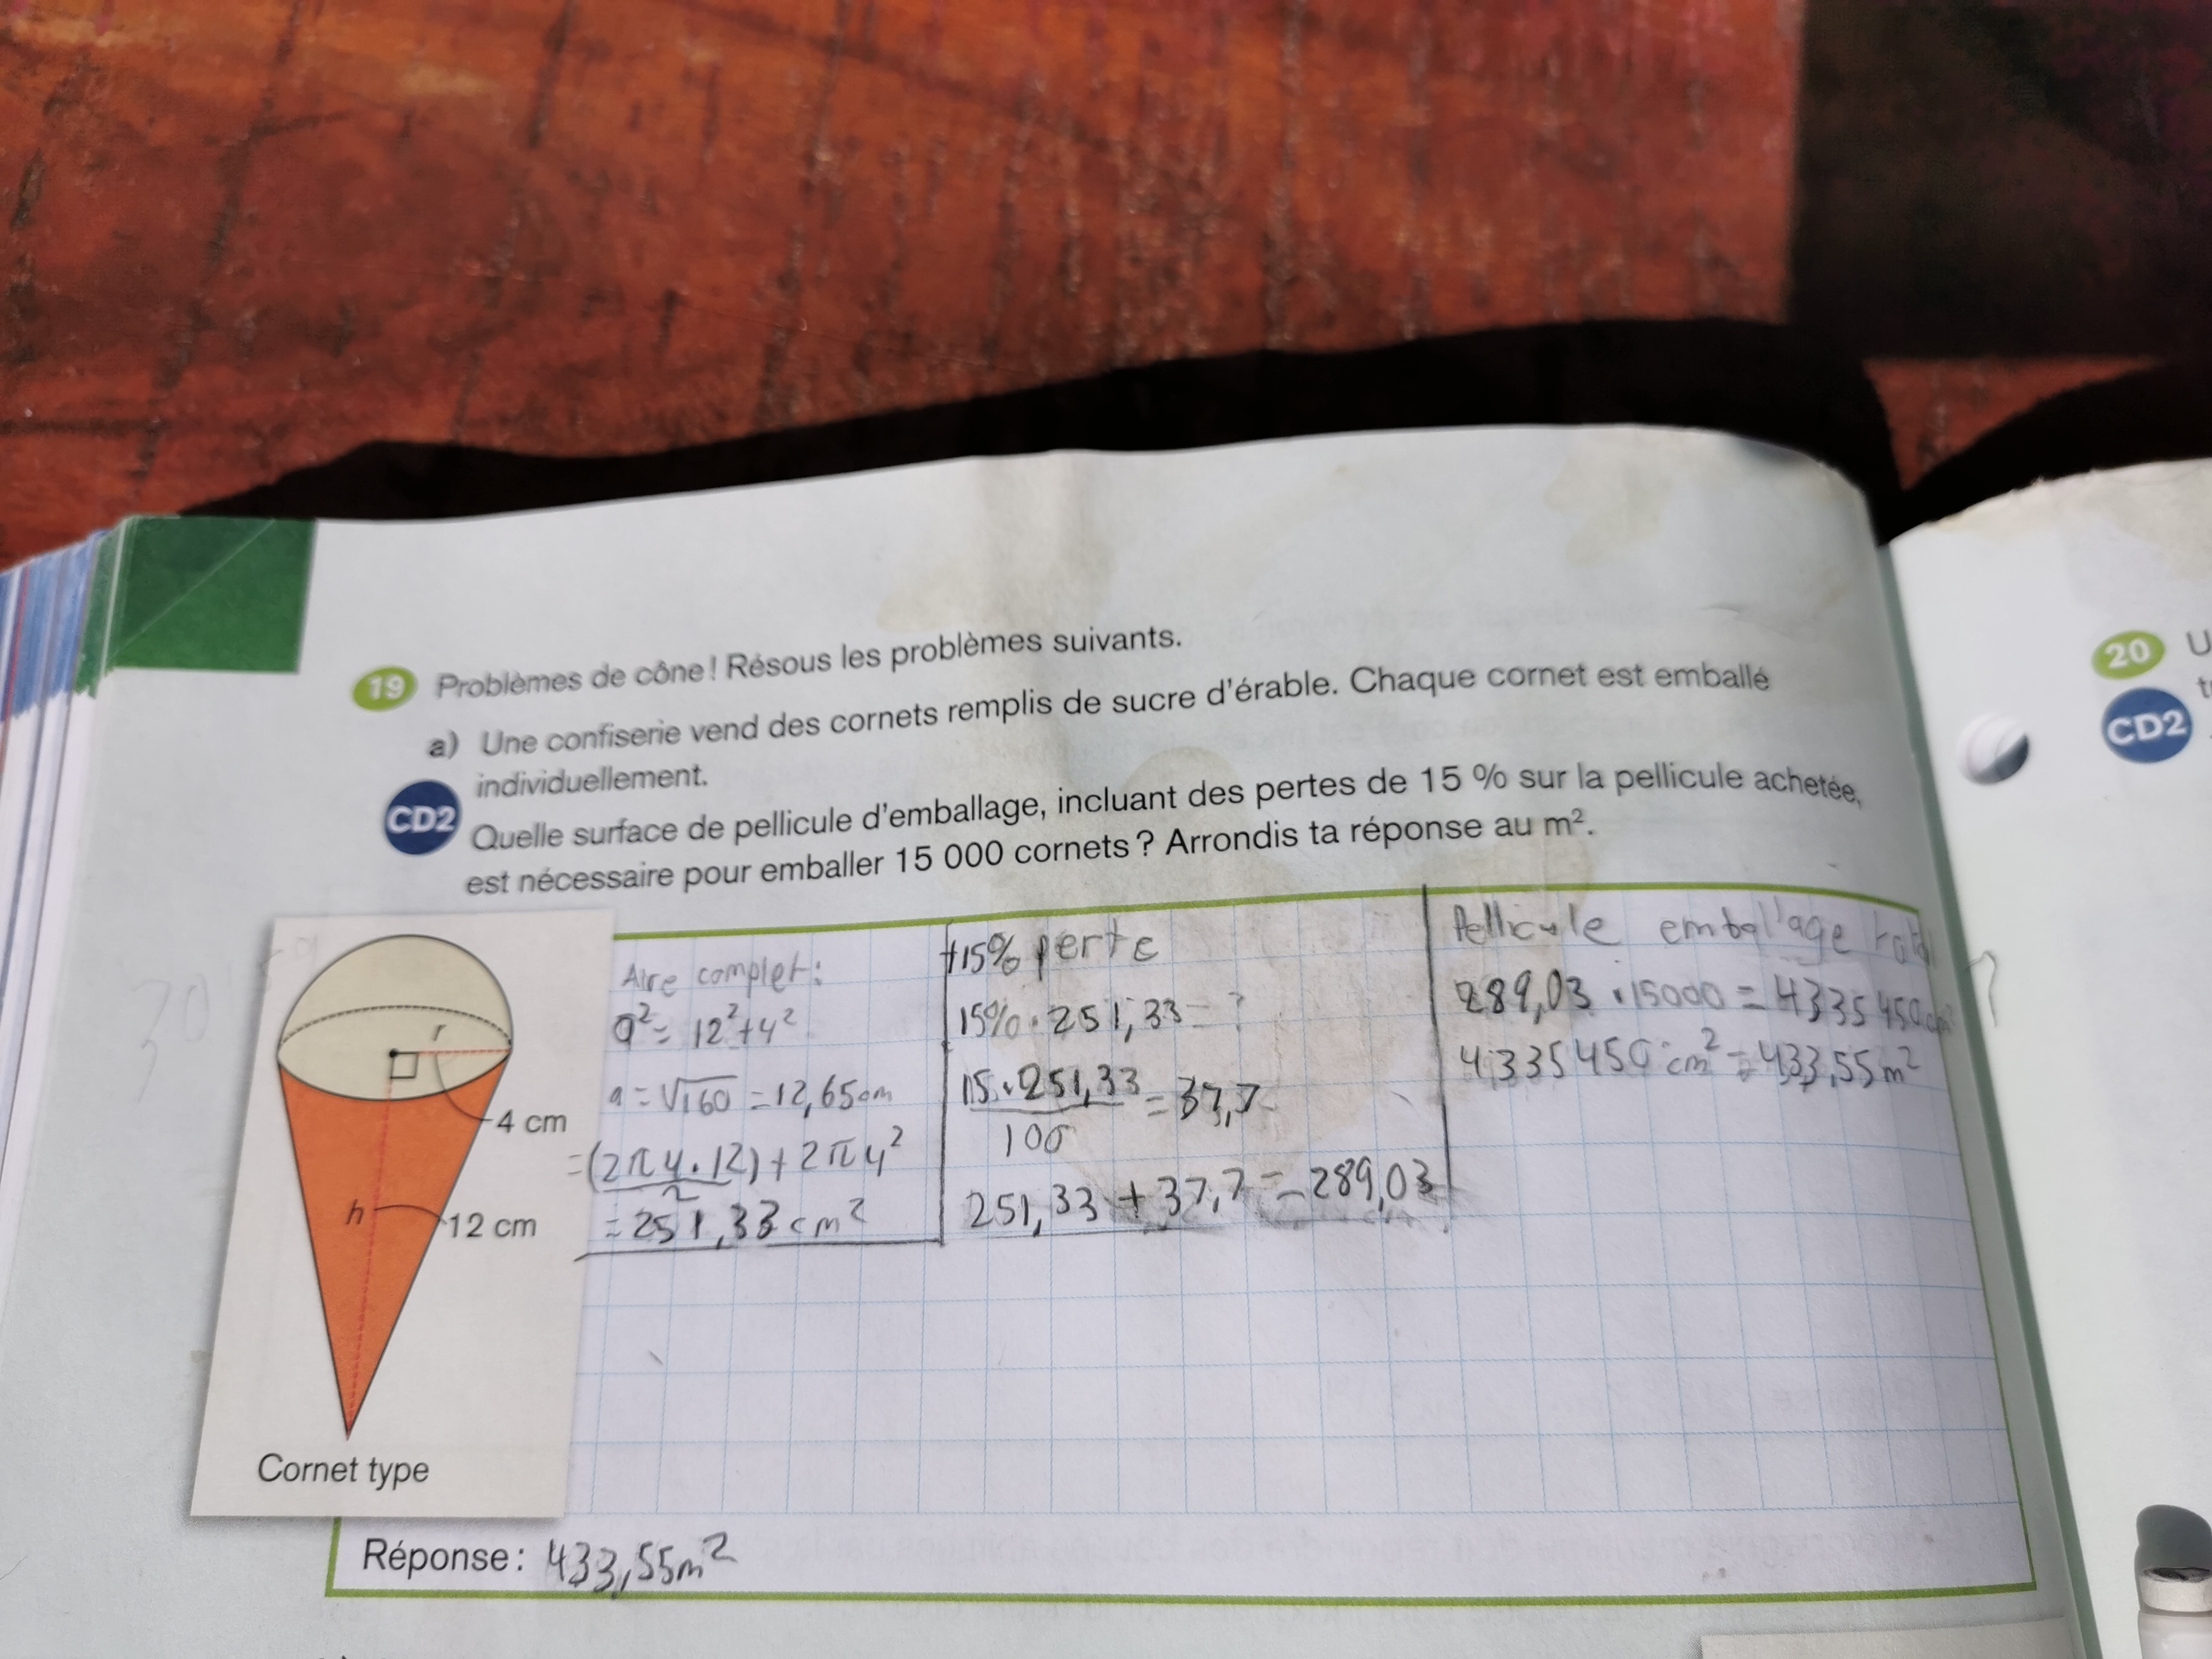 19 Problèmes de cône! Résous les problèmes suivants.
a) Une confiserie vend des cornets remplis de sucre d'érable. Chaque cornet est emballé
individuellement.
CD2
Quelle surface de pellicule d'emballage, incluant des pertes de 15 % sur la pellicule achetée,
est nécessaire pour emballer 15 000 cornets? Arrondis ta réponse au m².
r
4 cm
h
12 cm
Cornet type
Aire complet:
a² = 12² + 4²
a = √160 = 12,65cm
= (2π4·12)/2 + 2π4²
= 251,33 cm²
+15% perte
15% · 251,33 = ?
15 · 251,33 / 100 = 37,7
251,33 + 37,7 = 289,03
Pellicule embal'age total
289,03 · 15000 = 4335450cm²
4335450 cm² = 433,55m²
Réponse : 433,55m²
20
CD2